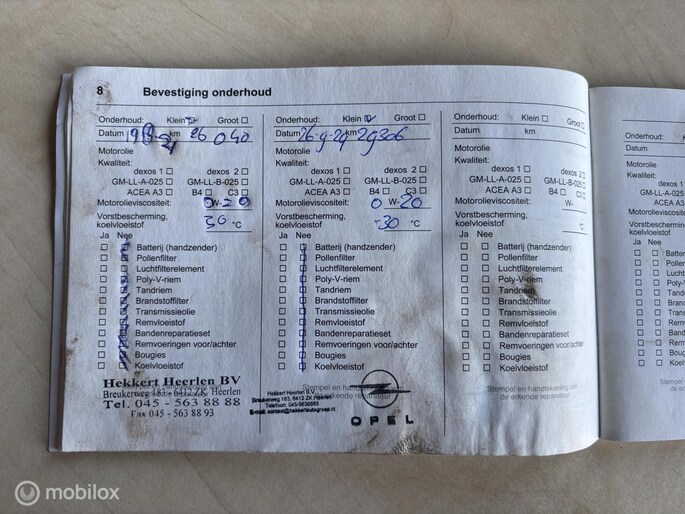 8 Bevestiging onderhoud
Onderhoud: Klein Groot
Datum km 26 040
Motorolie
Kwaliteit:
dexos 1 dexos 2
GM-LL-A-025 GM-LL-B-025
ACEA A3 B4 C3
Motorolieviscositeit: 0 W-20
Vorstbescherming,
koelvloeistof 30 °C
Ja Nee
Batterij (handzender)
Pollenfilter
Luchtfilterelement
Poly-V-riem
Tandriem
Brandstoffilter
Transmissieolie
Remvloeistof
Bandenreparatieset
Remvoeringen voor/achter
Bougies
Koelvloeistof
Hekkert Heerlen BV
Breukerweg 183, 6412 ZK Heerlen
Tel. 045 - 563 88 88
Fax 045 - 563 88 93
Onderhoud: Klein Groot
Datum 26-9-24 km 29306
Motorolie
Kwaliteit:
dexos 1 dexos 2
GM-LL-A-025 GM-LL-B-025
ACEA A3 B4 C3
Motorolieviscositeit: 0 W-20
Vorstbescherming,
koelvloeistof -30 °C
Ja Nee
Batterij (handzender)
Pollenfilter
Luchtfilterelement
Poly-V-riem
Tandriem
Brandstoffilter
Transmissieolie
Remvloeistof
Bandenreparatieset
Remvoeringen voor/achter
Bougies
Koelvloeistof
Stempel en handtekening van
de erkende reparateur
Hekkert Heerlen B.V.
Breukerweg 183, 6412 ZK Heerlen
Telefoon: 045-5638888
OPEL
Onderhoud: Klein Groot
Datum km
Motorolie
Kwaliteit:
dexos 1 dexos 2
GM-LL-A-025 GM-LL-B-025
ACEA A3 B4 C3
Motorolieviscositeit: W-
Vorstbescherming,
koelvloeistof °C
Ja Nee
Batterij (handzender)
Pollenfilter
Luchtfilterelement
Poly-V-riem
Tandriem
Brandstoffilter
Transmissieolie
Remvloeistof
Bandenreparatieset
Remvoeringen voor/achter
Bougies
Koelvloeistof
Stempel en handtekening van
de erkende reparateur
Onderhoud:
Datum
Motorolie
Kwaliteit:
GM-LL-
Motorolievi
Vorstbesch
koelvloeisto
Ja Nee
Batter
Pollen
Luchtf
Poly-V
Tandri
Brands
Transm
Remvl
Bande
Remvo
Bougie
Koelvl
mobilox